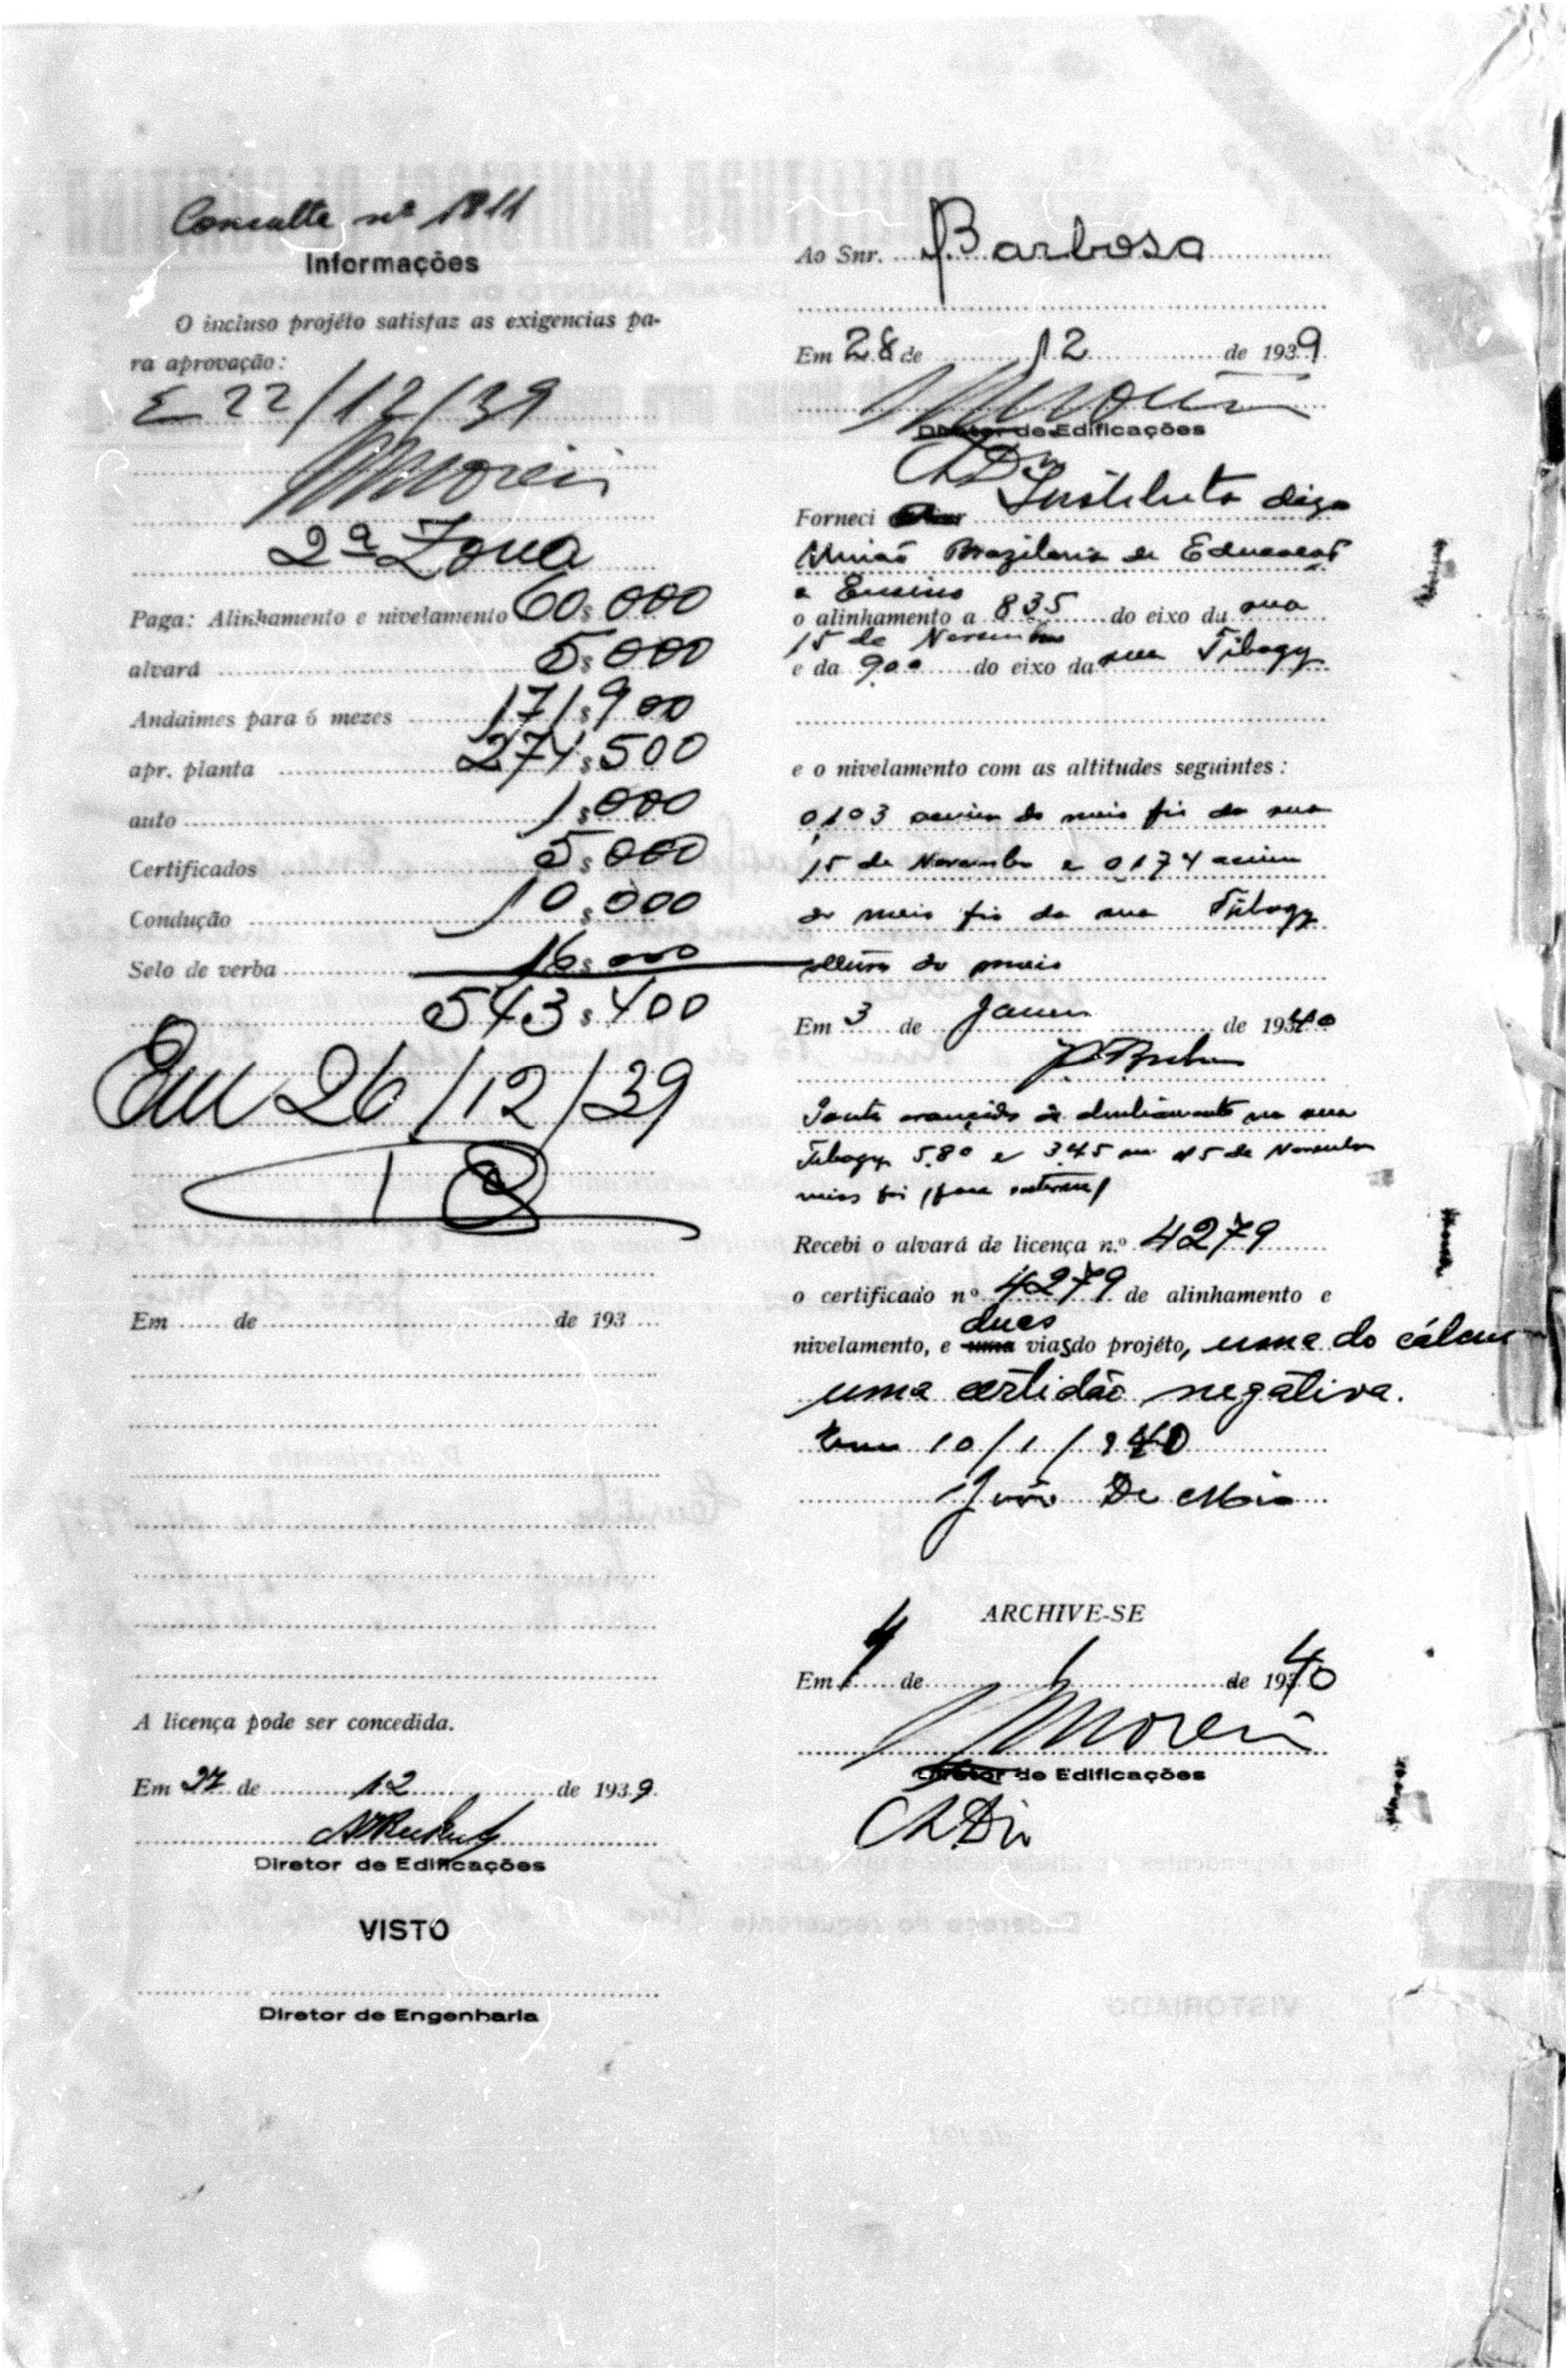 Consulte nº 1811
Informações
O incluso projéto satisfaz as exigencias pa-
ra aprovação:
E 22/12/39
Moreir
2ª Zona
Paga: Alinhamento e nivelamento 60$000
alvará 5$000
Andaimes para 6 mezes 171$900
apr. planta 274$500
auto 1$000
Certificados 5$000
Condução 10$000
Selo de verba 16$000
543$400
Em 26/12/39
Em de de 193
A licença pode ser concedida.
Em 27 de 12 de 1939
Diretor de Edificações
VISTO
Diretor de Engenharia
Ao Snr. Barbosa
Em 28 de 12 de 1939
Diretor de Edificações
Forneci Instituto digo
União Brazileria de Educação
e Ensino
o alinhamento a 835 do eixo da rua
15 de Novembro
e da 900 do eixo da rua Tibagy
e o nivelamento com as altitudes seguintes:
0,103 acima do meio fio da rua
15 de Novembro e 0,174 acima
do meio fio da rua Tibagy
do
Em 3 de Janeiro de 1940
de na rua
Tibagy 5.80 e 3.45 15 de Novembro
Recebi o alvará de licença n.º 4279
o certificado nº 4279 de alinhamento e
duas
nivelamento, e uma vias do projéto, uma do cálculo
uma certidão negativa.
Em 10/1/940
João De Maio
ARCHIVE-SE
Em de 1 de 1940
Moreir
Diretor de Edificações